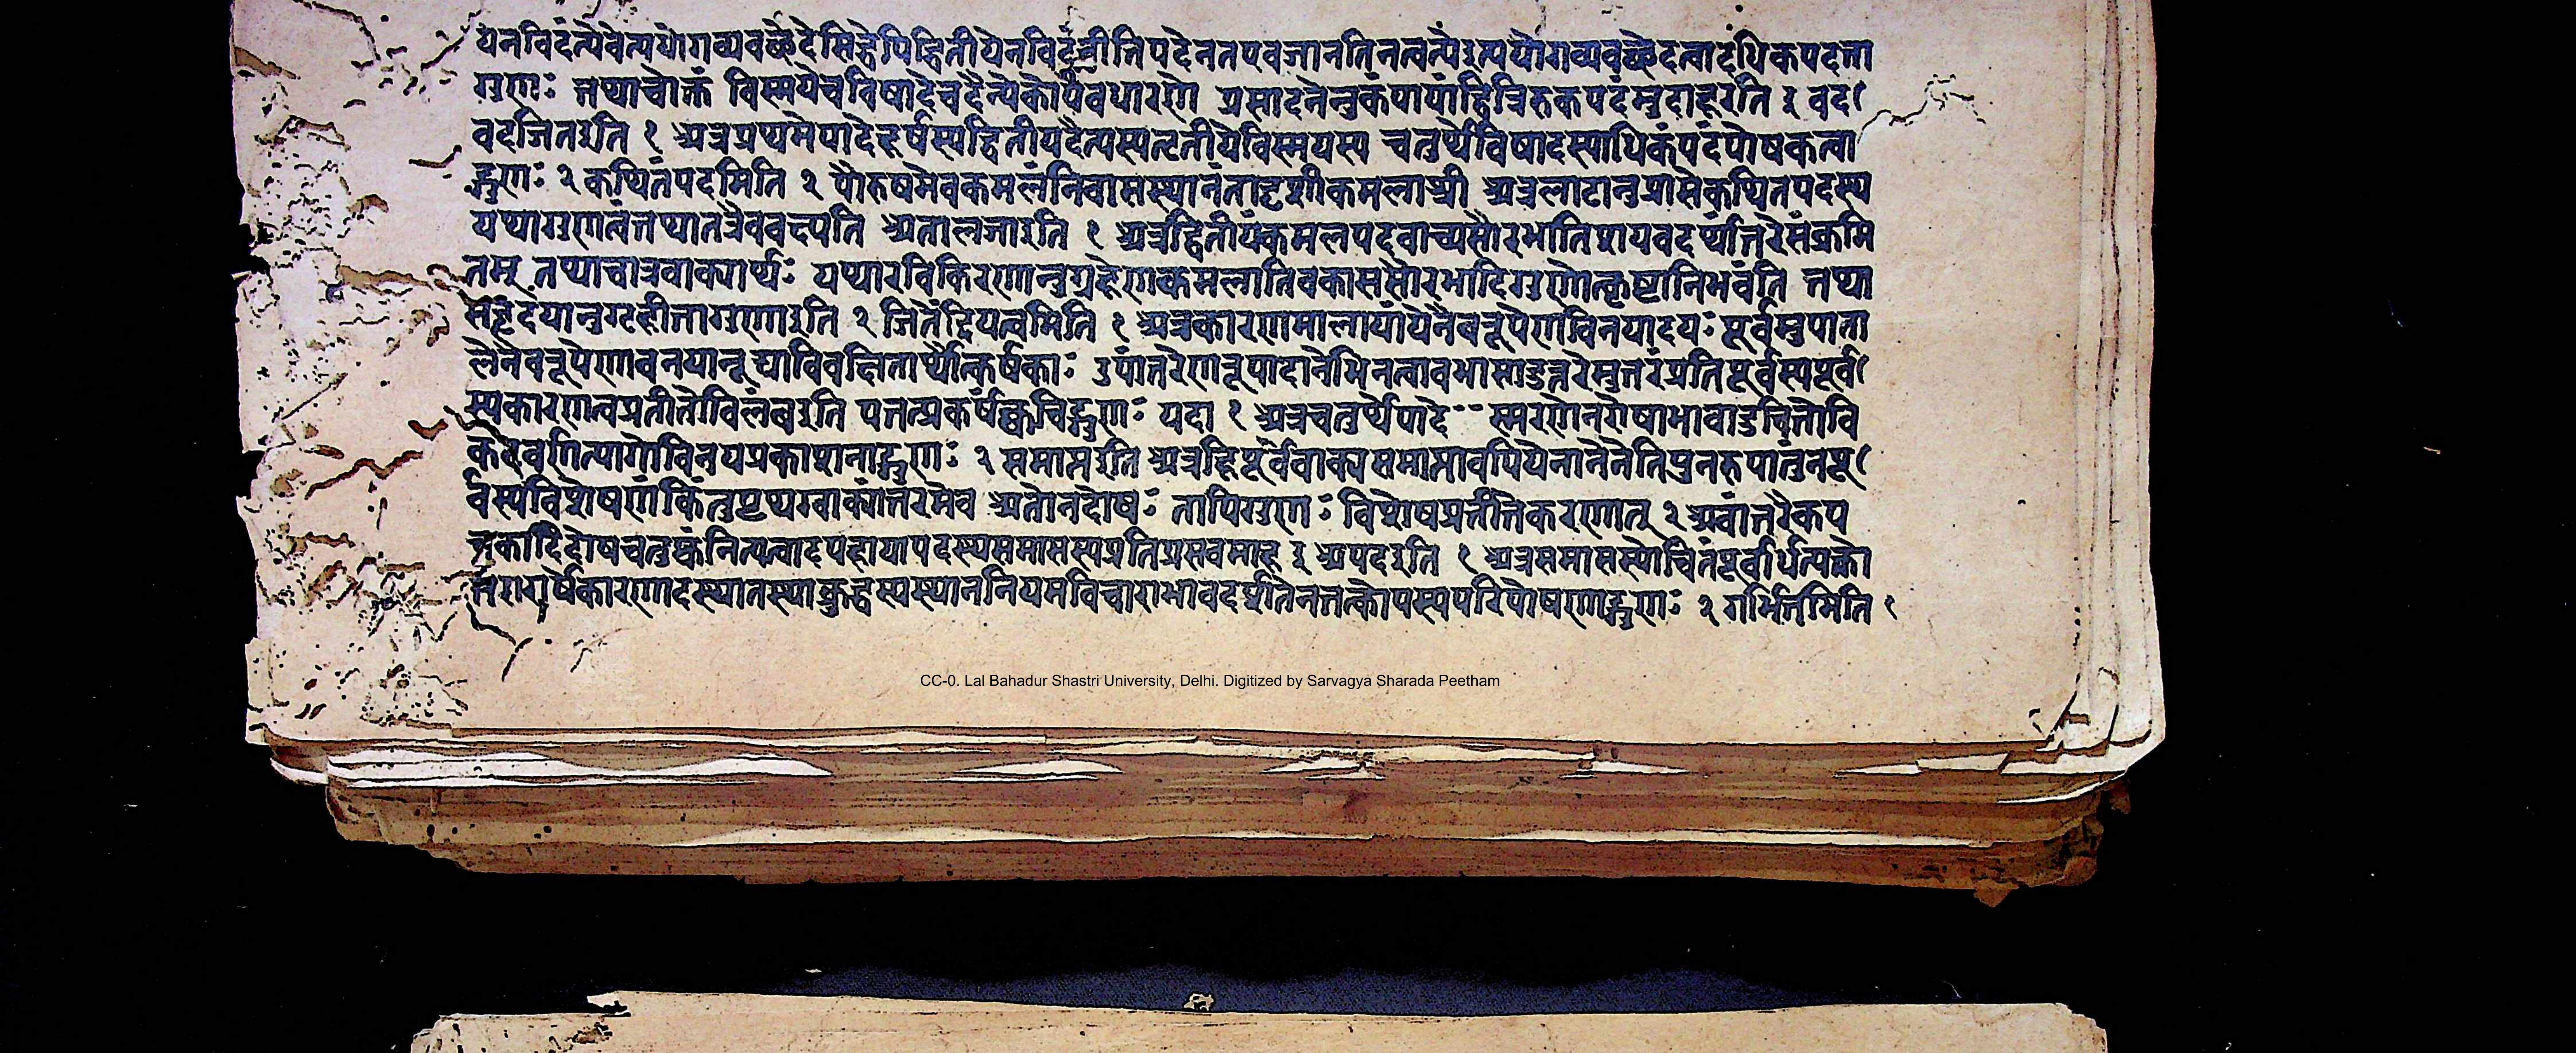 येनविदंत्येवेत्ययोगव्यवच्छेदेसिद्धेपिद्वितीयेनविदंतीतिपदेनतएवजानंतिनत्वन्येइत्ययोगव्यवच्छेदत्वादधिकपदत्ता
गुणः तथाचोक्तं विस्मयेचविषादेचदैन्येकोपेवधारणे प्रसादनेनुकंपायांद्वित्रिरुक्तपदंमुदाहृरति इ वद
वदजितइति १ अत्रप्रथमेपादेहर्षस्यद्वितीयदैन्यस्यतृतीयेविस्मयस्य चतुर्थेविषादस्याधिकंपदंपोषकत्वा
द्गुणः २ कथितंपदमिति २ पौरुषमेवकमलंनिवासस्थानंतादृशीकमलाश्री अत्रलाटानुप्रासेकथितपदस्य
यथागुणत्वंतथातत्रैववक्ष्यति अतालजाइति १ अत्रद्वितीयंकमलपदवाच्यसौरभातिशयवदर्थांतरेसंक्रमि
तम् तथाचात्रवाक्यार्थः यथारविकिरणानुग्रहेणकमलातिवकाससौरभादिगुणोत्कृष्टानिभवंति तथा
सहृदयानुगृहीतागुणाइति २ जितेंद्रियत्वमिति १ अत्रकारणमालायांयेनैवरूपेणविनयादयः पूर्वमुपाता
लेनैवरूपेणावनयानूद्याविवक्षितार्थोत्कर्षकाः रुपांतरेणरूपादानेभिनत्वावभासाडुत्तरेमुत्तरंप्रतिपूर्वस्यपूर्व
स्यकारणत्वप्रतीतोविलंबइति पतत्प्रकर्षक्कचिद्गुणः यदा १ अत्रचतुर्थपादे स्मरणेनरोषाभावाडुचितोवि
कटवर्णत्यागोविनयप्रकाशनाद्गुणः २ समाप्तइति अत्रहिपूर्ववाक्यसमाप्तावपियेनानेनेतिपुनरुपातंनपू
र्वस्यविशेषणंकिंतुपृथग्वाक्यांतरमेव अतोनदोषः नापिगुणः विशेषप्रतीतिकरणात् २ अवांतरैकप
त्रकादिदोषचतुष्कंनित्यत्वादपहायापदस्यसमासस्यप्रतिप्रसवमाह इ अपदइति १ अत्रसमासस्योचितंपूर्वार्धत्यक्तो
त्तरार्धेकारणादस्थानस्थाक्रुद्धस्यस्थाननियमविचाराभावदर्शितेनतत्कोपस्यपरिपोषणाद्गुणः २ गर्भितमिति १
CC-0. Lal Bahadur Shastri University, Delhi. Digitized by Sarvagya Sharada Peetham